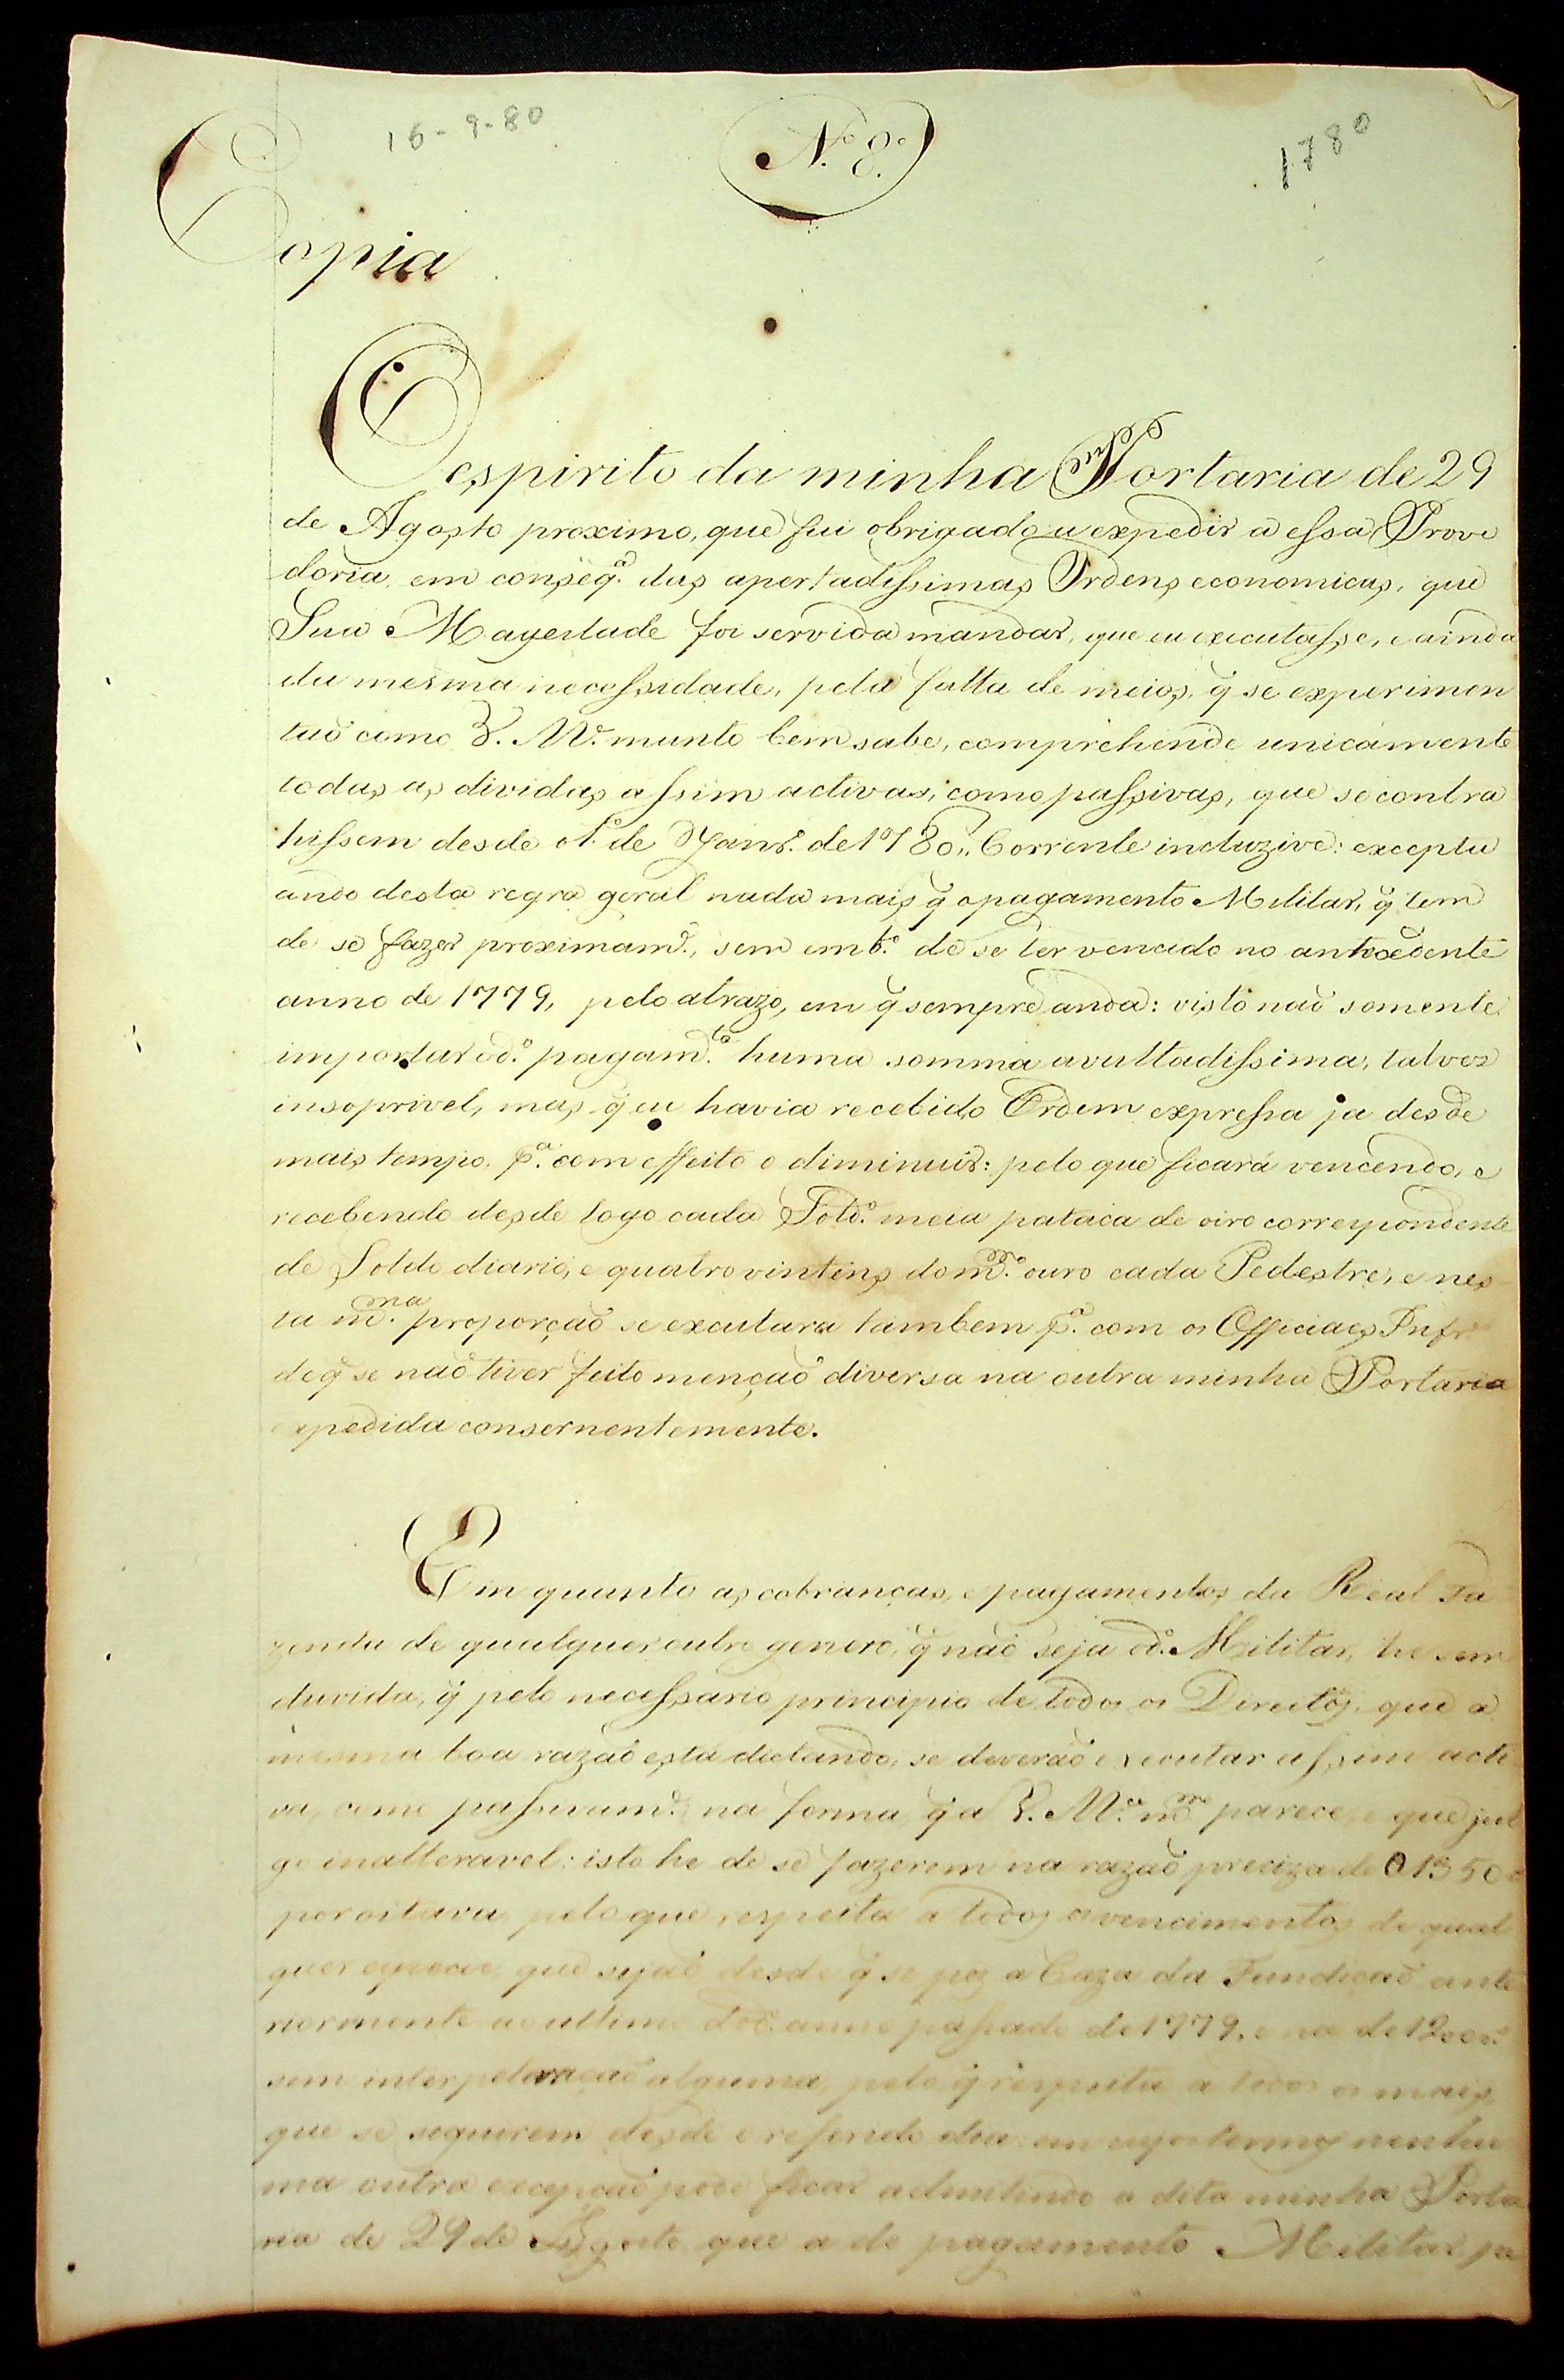 16-9-80
N.º 8.º
1780
Copia
O espirito da minha Portaria de 29
de Agosto proximo, que fui obrigado a expedir a essa Prove
doria em conseq.ª das apertadissimas Ordens economicas, que
Sua Magestade foi servida mandar, que eu executasse, e ainda
da mesma necessidade, pela falta de meios, q̃ se experimen
taõ como V. M.ce munto bem sabe, comprehende unicamente
todas as dividas assim activas, como passivas, que se contra
hissem desde o 1.º de Janr.º de 1780,, Corrente incluzive: exceptu
ando desta regra geral nada mais q̃ o pagamento Militar, q̃ tem
de se fazer proximam.e, sem emb.º de se ter vencido no antecedente
anno de 1779, pelo atrazo, em q̃ sempre anda: visto naõ somente
importar o d.º pagam.to huma somma avultadissima, talvez
insoprivel, mas q̃ eu havia recebido Ordem expressa ja desde
mais tempo p.ª com effeito o diminuir: pelo que ficará vencendo, e
recebendo desde logo cada Sold.º meia pataca de oiro correspondente
de Soldo diario, e quatro vintens do m.mo ouro cada Pedestre, e nes
ta m.ma proporçaõ se executara tambem p.ª com os Officiaes Infr.es
de q̃ se naõ tiver feito mençaõ diversa na outra minha Portaria
expedida consernentemente.
Em quanto as cobranças, e pagamentos da Real Fa
zenda de qualquer outro genero, q̃ naõ seja o d.º Militar, he sem
duvida, q̃ pelo necessario principio de todos os Direitos, que a
mesma boa razaõ está dictando, se deveraõ executar assim acti
va, como passivam.e na forma, q̃ a V. M.ce m.mo parece, e que jul
go inalteravel: isto he de se fazerem na razaõ preciza de 1350
por oitava pelo que respeita a todos os vencimentos de qual
quer especie, que sejaõ desde q̃ se poz a Caza da Fundiçaõ ante
riormente ao ultimo do d.º anno passado de 1779, e na de 1200r.s
sem interpelaraçaõ alguma, pelo q̃ respeita a todos os mais,
que se seguirem desde o referido dia: em cujos termos nenhu
ma outra excepçaõ pode ficar admitindo a dita minha Porta
ria de 29 de Agosto que a do pagamento Militar ja